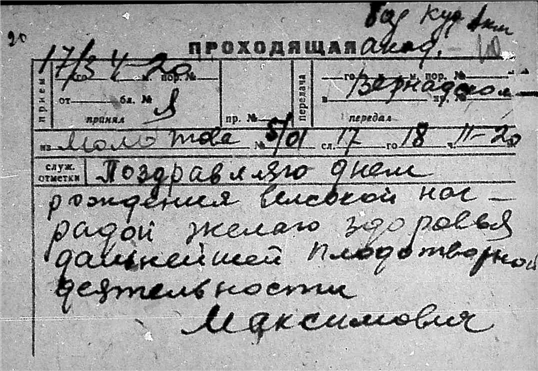 20
ПРОХОДЯЩАЯ акад.
17/3 4-20
прием го пор. № передача го ч. пор. №
от бл. № Вернадском
принял пр. № в пр. № передал
из Молотова № 5/01 сл. 17 го 18 ч. 11-20
служ. отметки Поздравляю днем
рождения высокой наг-
радой желаю здоровья
дальнейшей плодотворной
деятельности
Максимович